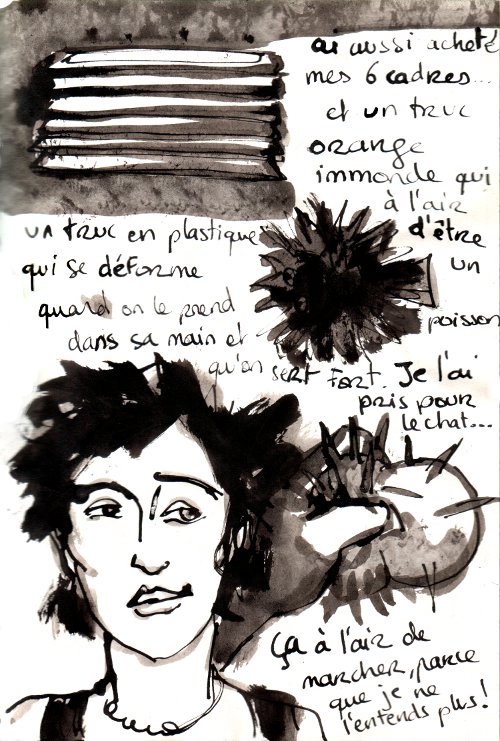 ai aussi acheté
mes 6 cadres...
et un truc
orange
immonde qui
à l'air
d'être
un
poisson
un truc en plastique
qui se déforme
quand on le prend
dans sa main et
qu'on sert fort. Je l'ai
pris pour
le chat...
ça à l'air de
marcher, parce
que je ne
l'entends plus!